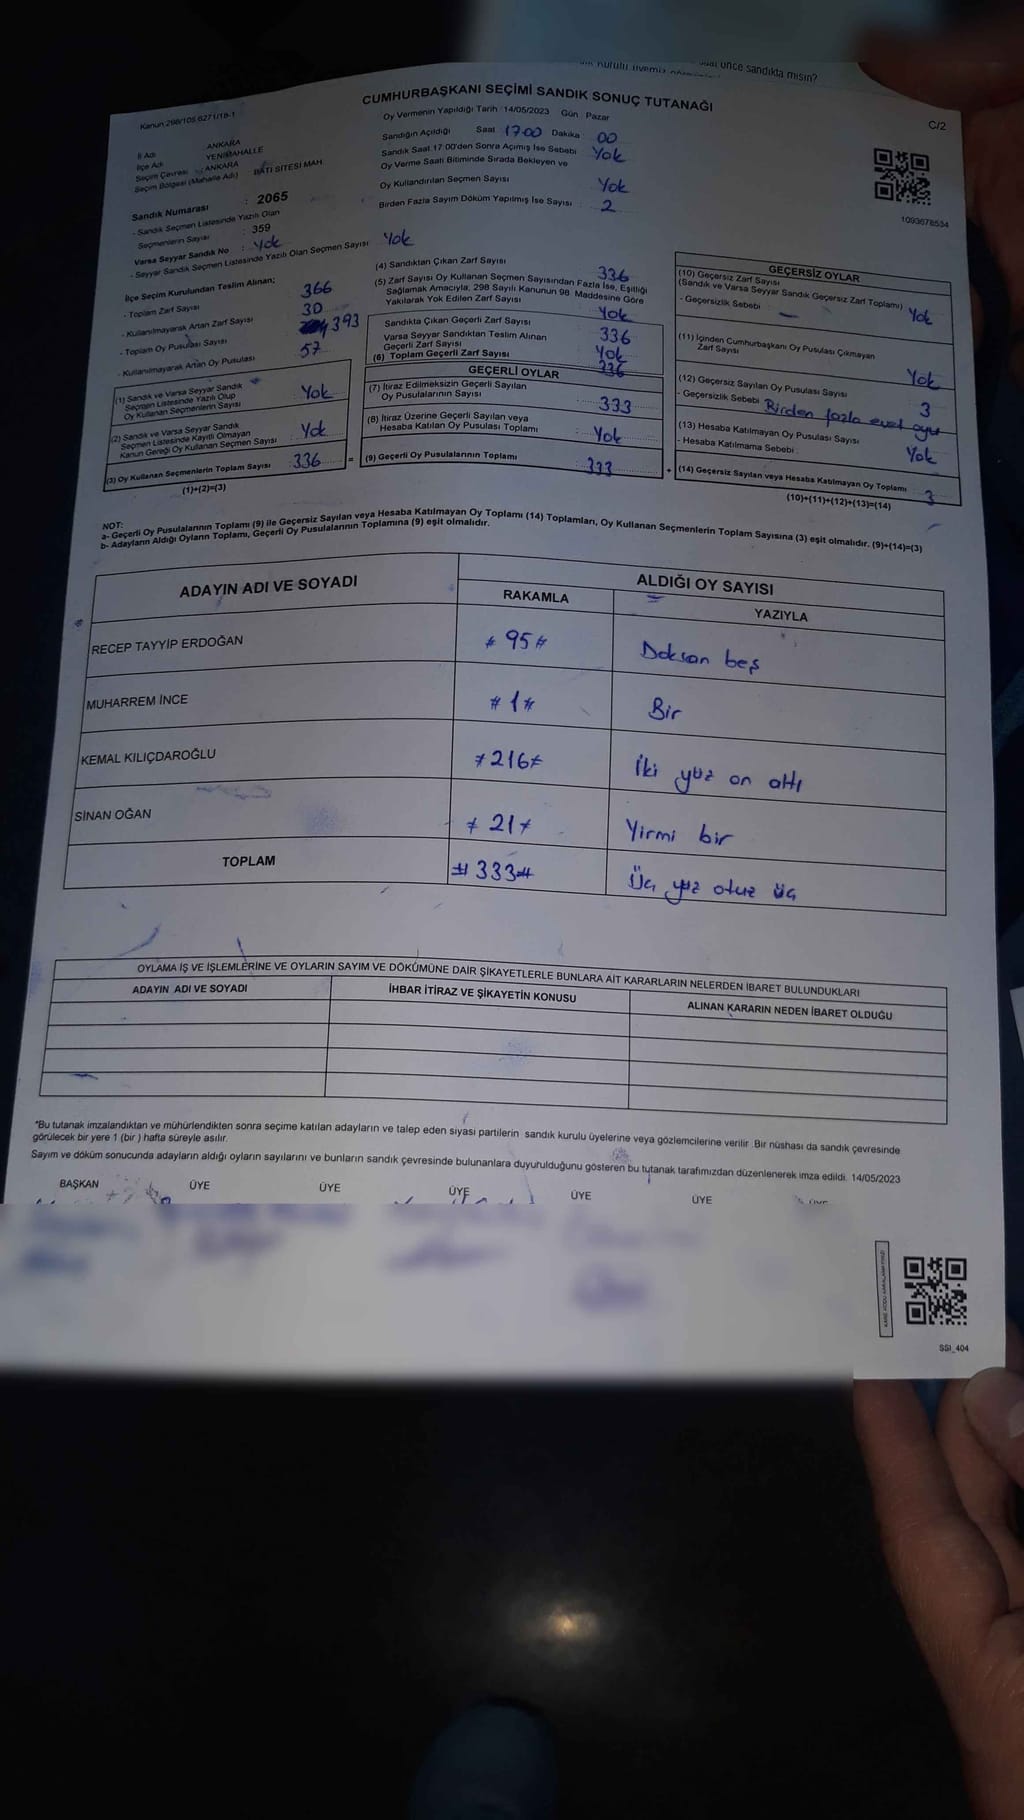 önce sandıkta mısın?
CUMHURBAŞKANI SEÇİMİ SANDIK SONUÇ TUTANAĞI
Kanun 298/105 6271/18-1
C/2
İl Adı : ANKARA
İlçe Adı : YENİMAHALLE
Seçim Çevresi : ANKARA
Seçim Bölgesi (Mahalle Adı) BATI SİTESİ MAH.
Sandık Numarası : 2065
- Sandık Seçmen Listesinde Yazılı Olan
Seçmenlerin Sayısı : 359
Varsa Seyyar Sandık No : Yok
- Seyyar Sandık Seçmen Listesinde Yazılı Olan Seçmen Sayısı Yok
Oy Vermenin Yapıldığı Tarih : 14/05/2023 Gün : Pazar
Sandığın Açıldığı Saat 17:00 Dakika 00
Sandık Saat 17:00'den Sonra Açılmış İse Sebebi Yok
Oy Verme Saati Bitiminde Sırada Bekleyen ve
Oy Kullandırılan Seçmen Sayısı Yok
Birden Fazla Sayım Döküm Yapılmış İse Sayısı : 2
1093678534
İlçe Seçim Kurulundan Teslim Alınan;
- Toplam Zarf Sayısı 366
- Kullanılmayarak Artan Zarf Sayısı 30
- Toplam Oy Pusulası Sayısı 393
- Kullanılmayarak Artan Oy Pusulası 57
(1) Sandık ve Varsa Seyyar Sandık
Seçmen Listesinde Yazılı Olup
Oy Kullanan Seçmenlerin Sayısı Yok
(2) Sandık ve Varsa Seyyar Sandık
Seçmen Listesinde Kayıtlı Olmayan
Kanun Gereği Oy Kullanan Seçmen Sayısı Yok
(3) Oy Kullanan Seçmenlerin Toplam Sayısı 336 =
(1)+(2)=(3)
(4) Sandıktan Çıkan Zarf Sayısı 336
(5) Zarf Sayısı Oy Kullanan Seçmen Sayısından Fazla İse, Eşitliği
Sağlamak Amacıyla, 298 Sayılı Kanunun 98. Maddesine Göre
Yakılarak Yok Edilen Zarf Sayısı : Yok
Sandıkta Çıkan Geçerli Zarf Sayısı : 336
Varsa Seyyar Sandıktan Teslim Alınan
Geçerli Zarf Sayısı : Yok
(6) Toplam Geçerli Zarf Sayısı 336
GEÇERLİ OYLAR
(7) İtiraz Edilmeksizin Geçerli Sayılan
Oy Pusulalarının Sayısı : 333
(8) İtiraz Üzerine Geçerli Sayılan veya
Hesaba Katılan Oy Pusulası Toplamı : Yok
(9) Geçerli Oy Pusulalarının Toplamı : 333 +
GEÇERSİZ OYLAR
(10) Geçersiz Zarf Sayısı
(Sandık ve Varsa Seyyar Sandık Geçersiz Zarf Toplamı) Yok
- Geçersizlik Sebebi : -
(11) İçinden Cumhurbaşkanı Oy Pusulası Çıkmayan
Zarf Sayısı Yok
(12) Geçersiz Sayılan Oy Pusulası Sayısı 3
- Geçersizlik Sebebi Birden fazla evet oyu
(13) Hesaba Katılmayan Oy Pusulası Sayısı
- Hesaba Katılmama Sebebi Yok
(14) Geçersiz Sayılan veya Hesaba Katılmayan Oy Toplamı 3
(10)+(11)+(12)+(13)=(14)
NOT:
a- Geçerli Oy Pusulalarının Toplamı (9) ile Geçersiz Sayılan veya Hesaba Katılmayan Oy Toplamı (14) Toplamları, Oy Kullanan Seçmenlerin Toplam Sayısına (3) eşit olmalıdır. (9)+(14)=(3)
b- Adayların Aldığı Oyların Toplamı, Geçerli Oy Pusulalarının Toplamına (9) eşit olmalıdır.
ADAYIN ADI VE SOYADI ALDIĞI OY SAYISI
RAKAMLA YAZIYLA
RECEP TAYYİP ERDOĞAN # 95 # Doksan beş
MUHARREM İNCE # 1 # Bir
KEMAL KILIÇDAROĞLU ≠ 216 ≠ İki yüz on altı
SİNAN OĞAN ≠ 21 ≠ Yirmi bir
TOPLAM # 333 # Üç yüz otuz üç
OYLAMA İŞ VE İŞLEMLERİNE VE OYLARIN SAYIM VE DÖKÜMÜNE DAİR ŞİKAYETLERLE BUNLARA AİT KARARLARIN NELERDEN İBARET BULUNDUKLARI
ADAYIN ADI VE SOYADI İHBAR İTİRAZ VE ŞİKAYETİN KONUSU ALINAN KARARIN NEDEN İBARET OLDUĞU
*Bu tutanak imzalandıktan ve mühürlendikten sonra seçime katılan adayların ve talep eden siyasi partilerin sandık kurulu üyelerine veya gözlemcilerine verilir. Bir nüshası da sandık çevresinde
görülecek bir yere 1 (bir ) hafta süreyle asılır.
Sayım ve döküm sonucunda adayların aldığı oyların sayılarını ve bunların sandık çevresinde bulunanlara duyurulduğunu gösteren bu tutanak tarafımızdan düzenlenerek imza edildi. 14/05/2023
BAŞKAN ÜYE ÜYE ÜYE ÜYE ÜYE ÜYE
SSI_404